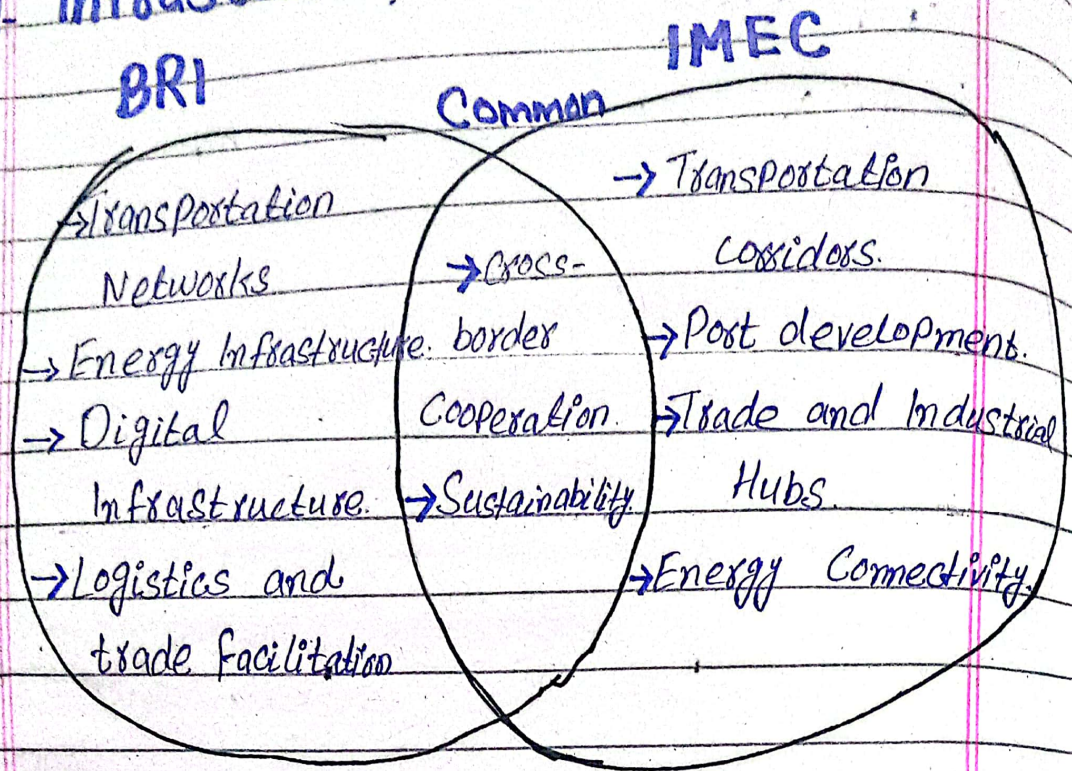 BRI
Common
IMEC
→Transportation
Networks
→ Energy Infrastructure.
→ Digital
Infrastructure.
→Logistics and
trade facilitation
→Cross-
border
Cooperation.
→Sustainability.
→ Transportation
Corridors.
→Port development.
→Trade and Industrial
Hubs.
→Energy Connectivity.